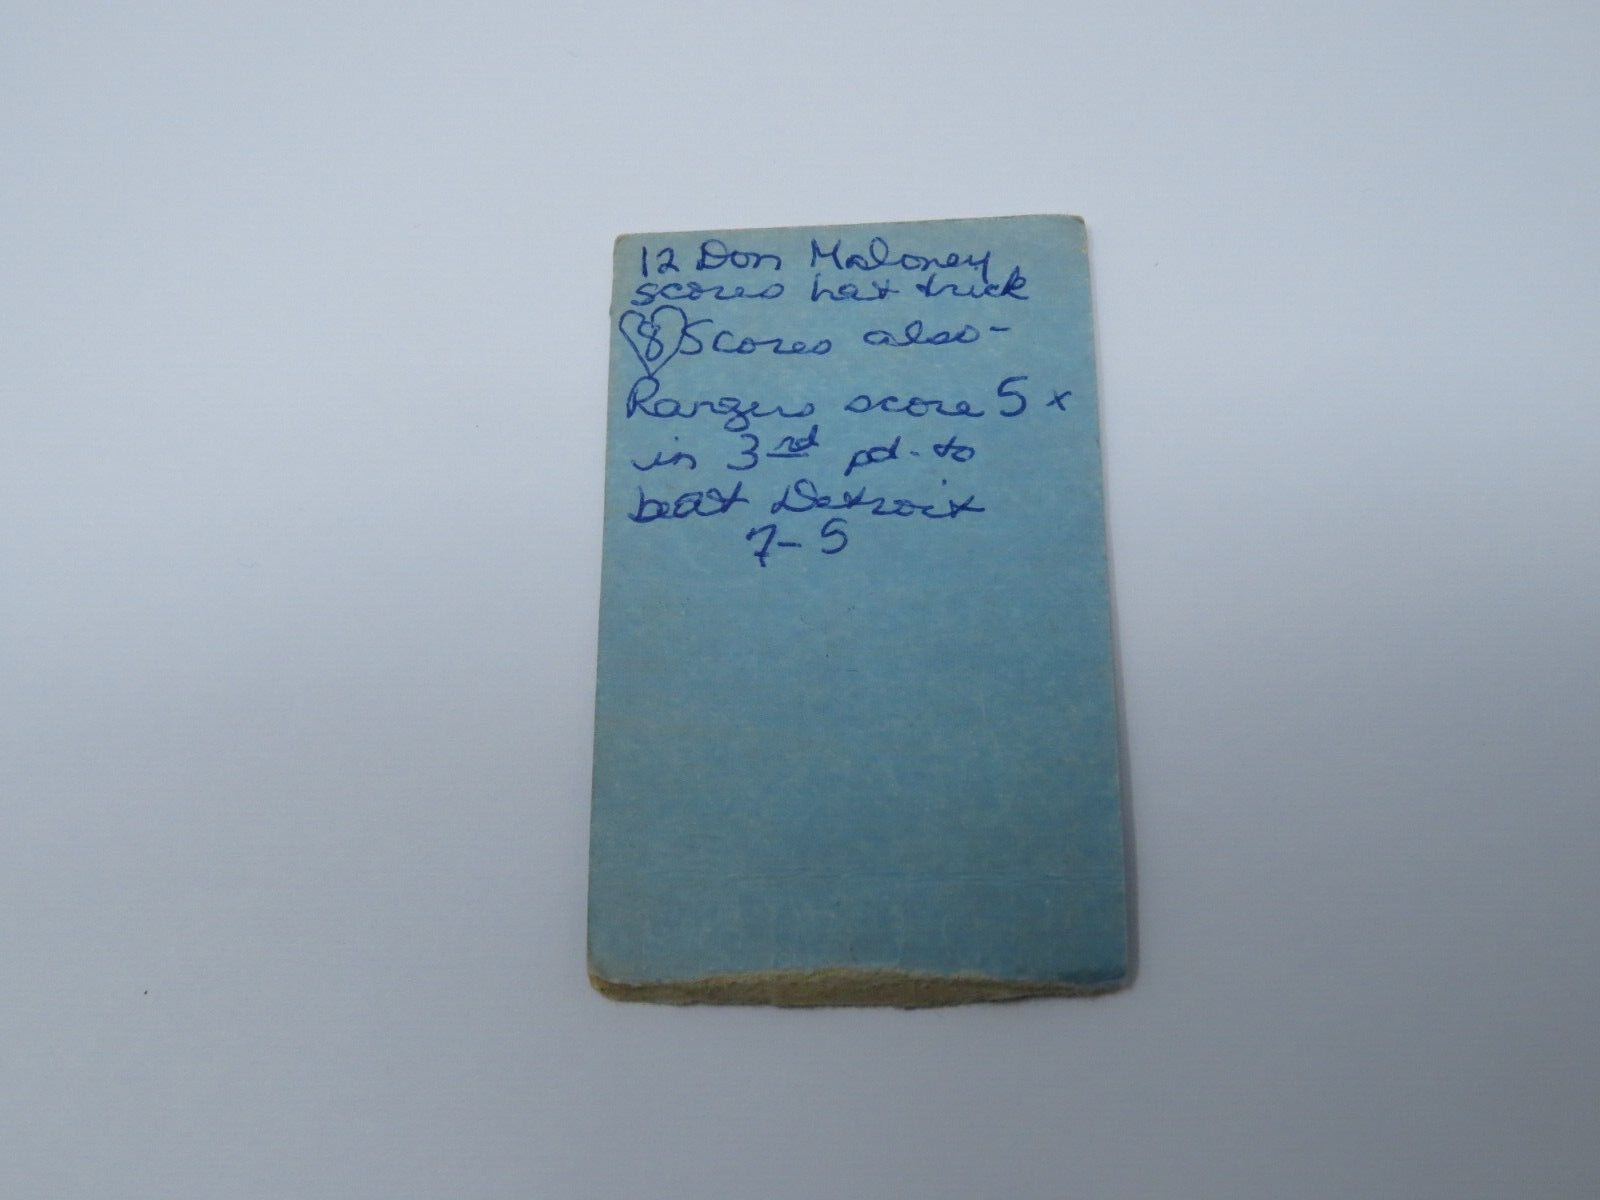 12 Don Maloney
scores hat trick
8 Scores also-
Rangers score 5 x
in 3rd pd. to
beat Detroit
7-5